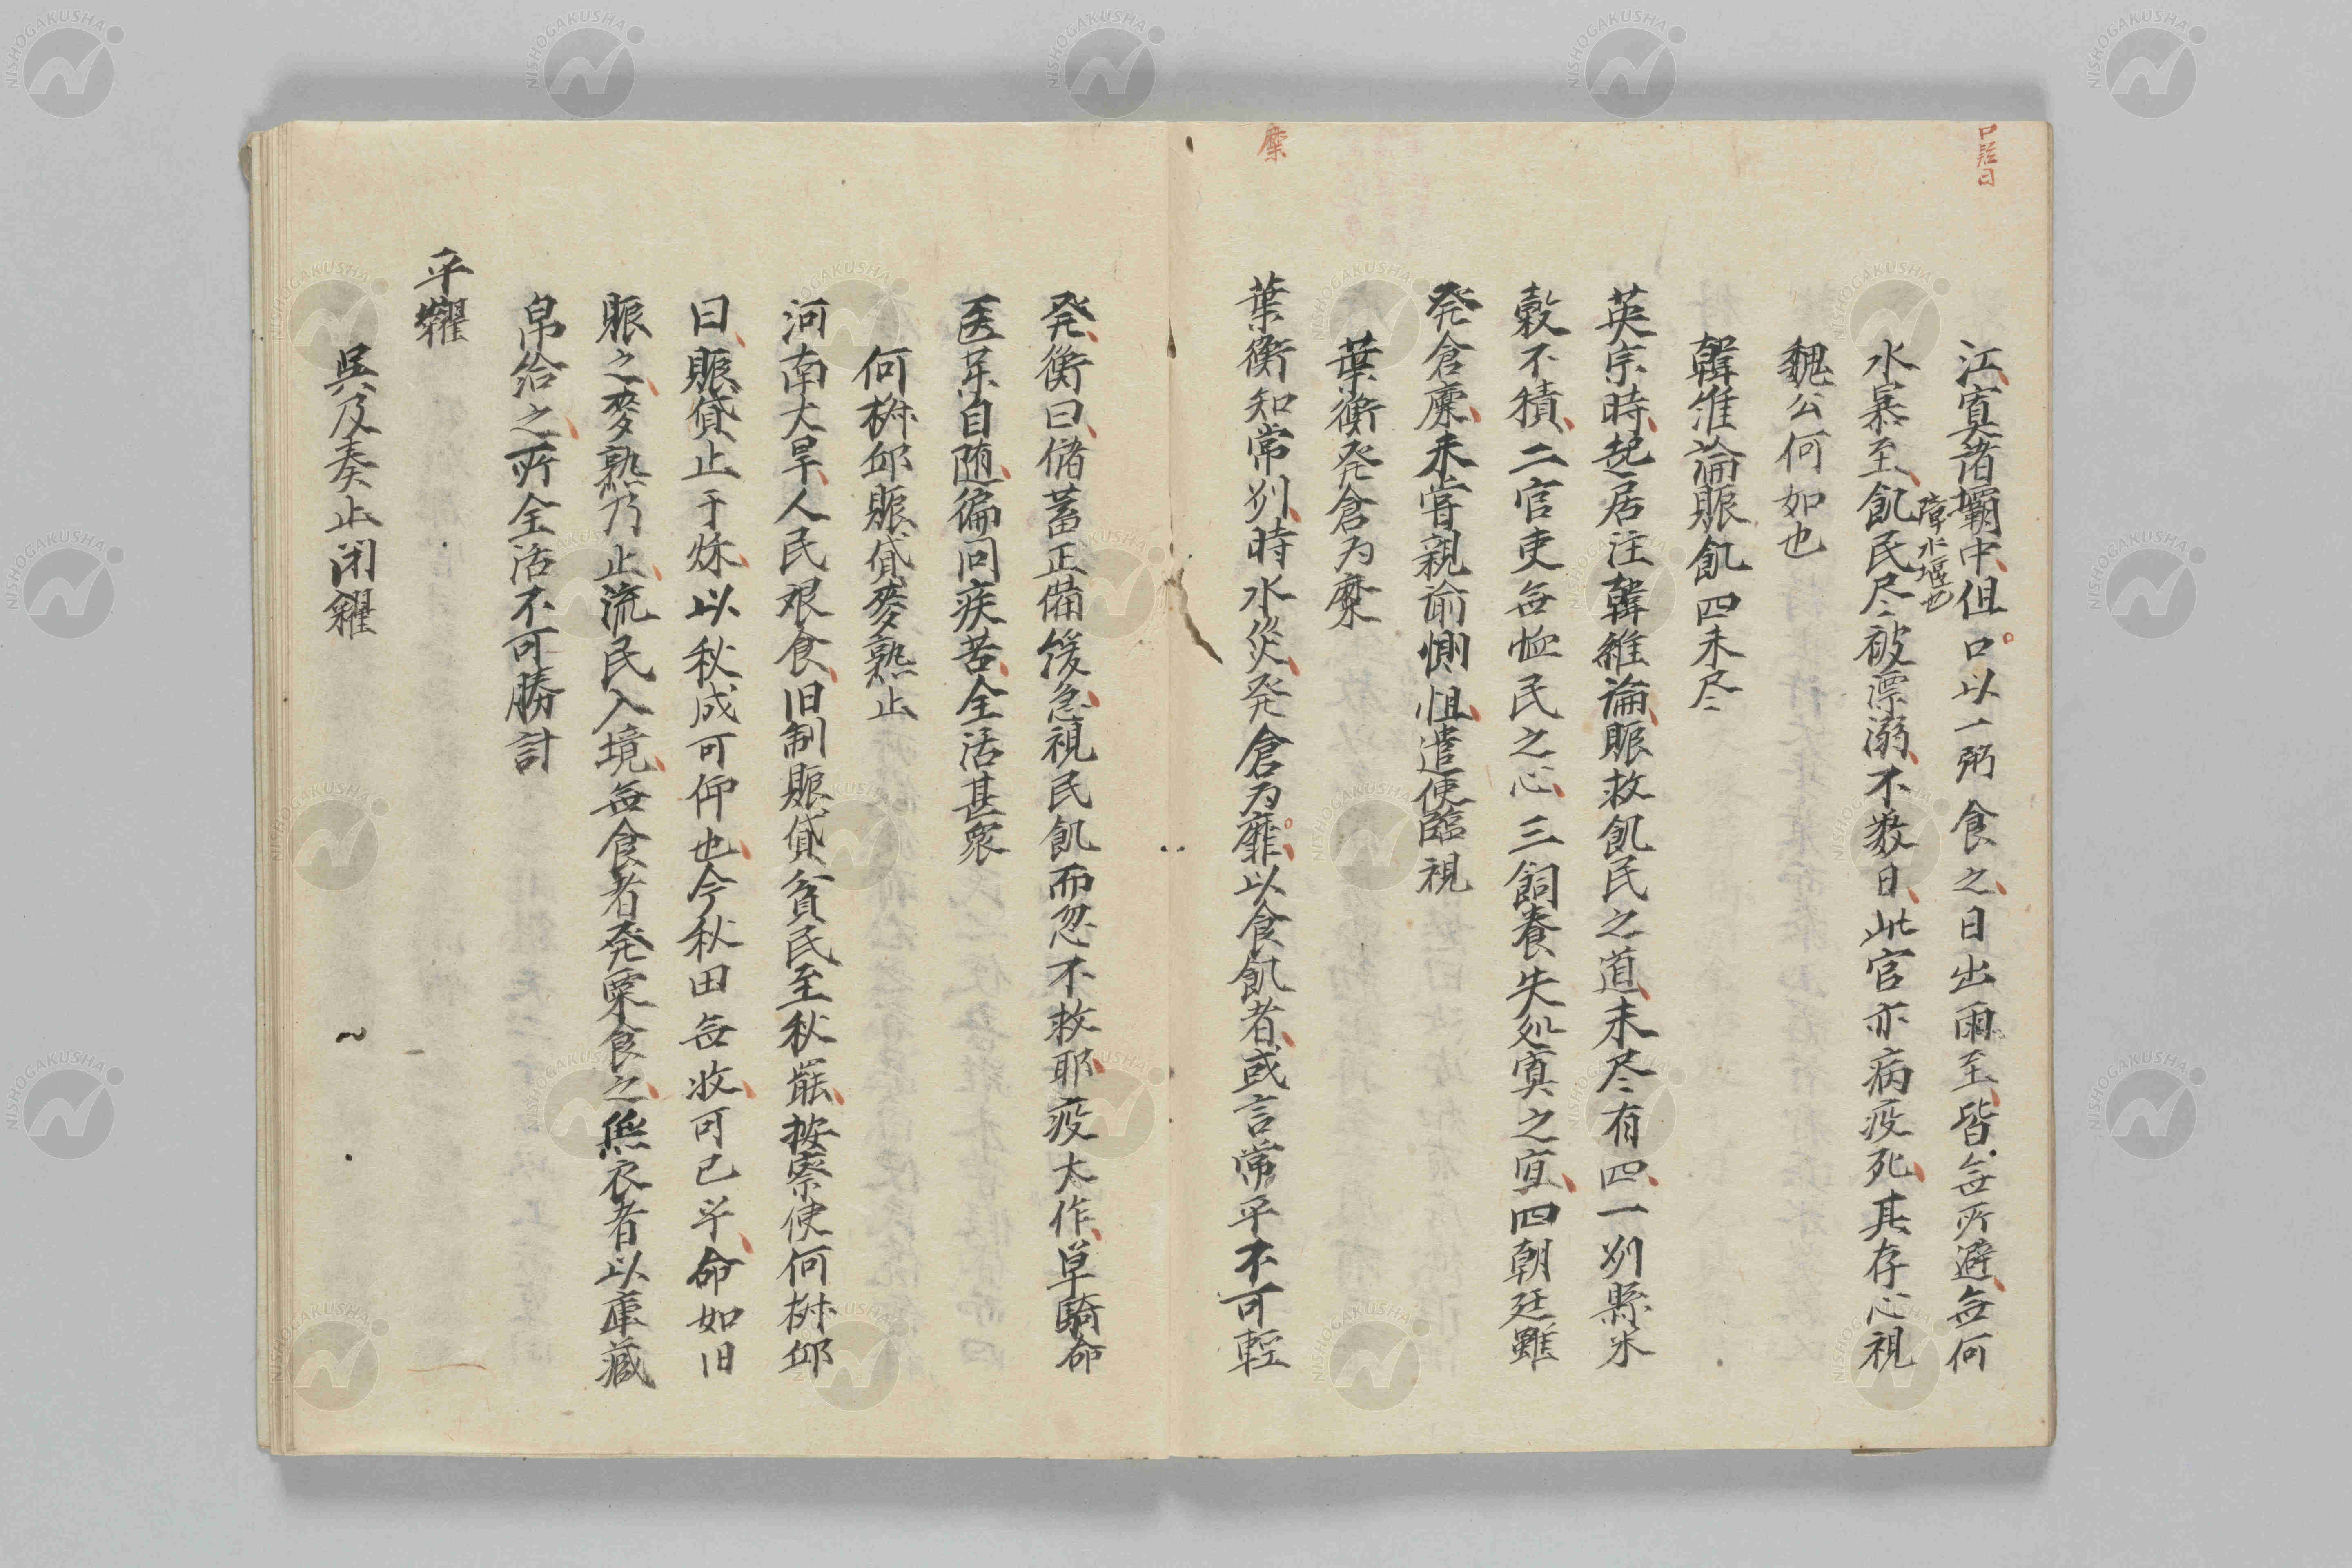 口疑日
江、寘諸壩中、但口以一粥食之、日出雨至、皆無所避、無何
障水堰也
水暴至、飢民尽被漂溺、不数日、此官亦病疫死、其存心視
魏公何如也
韓維論賑飢四未尽
英宗時、起居注韓維論、賑救飢民之道、未尽有四、一州県米
穀不積、二官吏無恤民之心、三飼養失処寘之宜、四朝廷雖
発倉廩、未嘗親諭惻怛、遣使臨視
葉衡発倉為糜
糜
葉衡知常州、時水災、発倉為靡、以食飢者、或言常平不可軽
発、衡曰、儲蓄正備緩急、視民飢而忽不救耶、疫大作、単騎命
医薬自随、徧問疾苦、全活甚衆
何桝邱賑貸麥熟止
河南大旱、人民艱食、旧制賑貸貧民至秋罷、按察使何桝邱
曰、賑貸止于秋、以秋成可仰也、今秋田無收、可已乎、命如旧
賑之、麥熟乃止、流民入境、無食者発粟食之、無衣者以庫蔵
帛給之、所全活不可勝計
平糴
呉及奏止閉糴